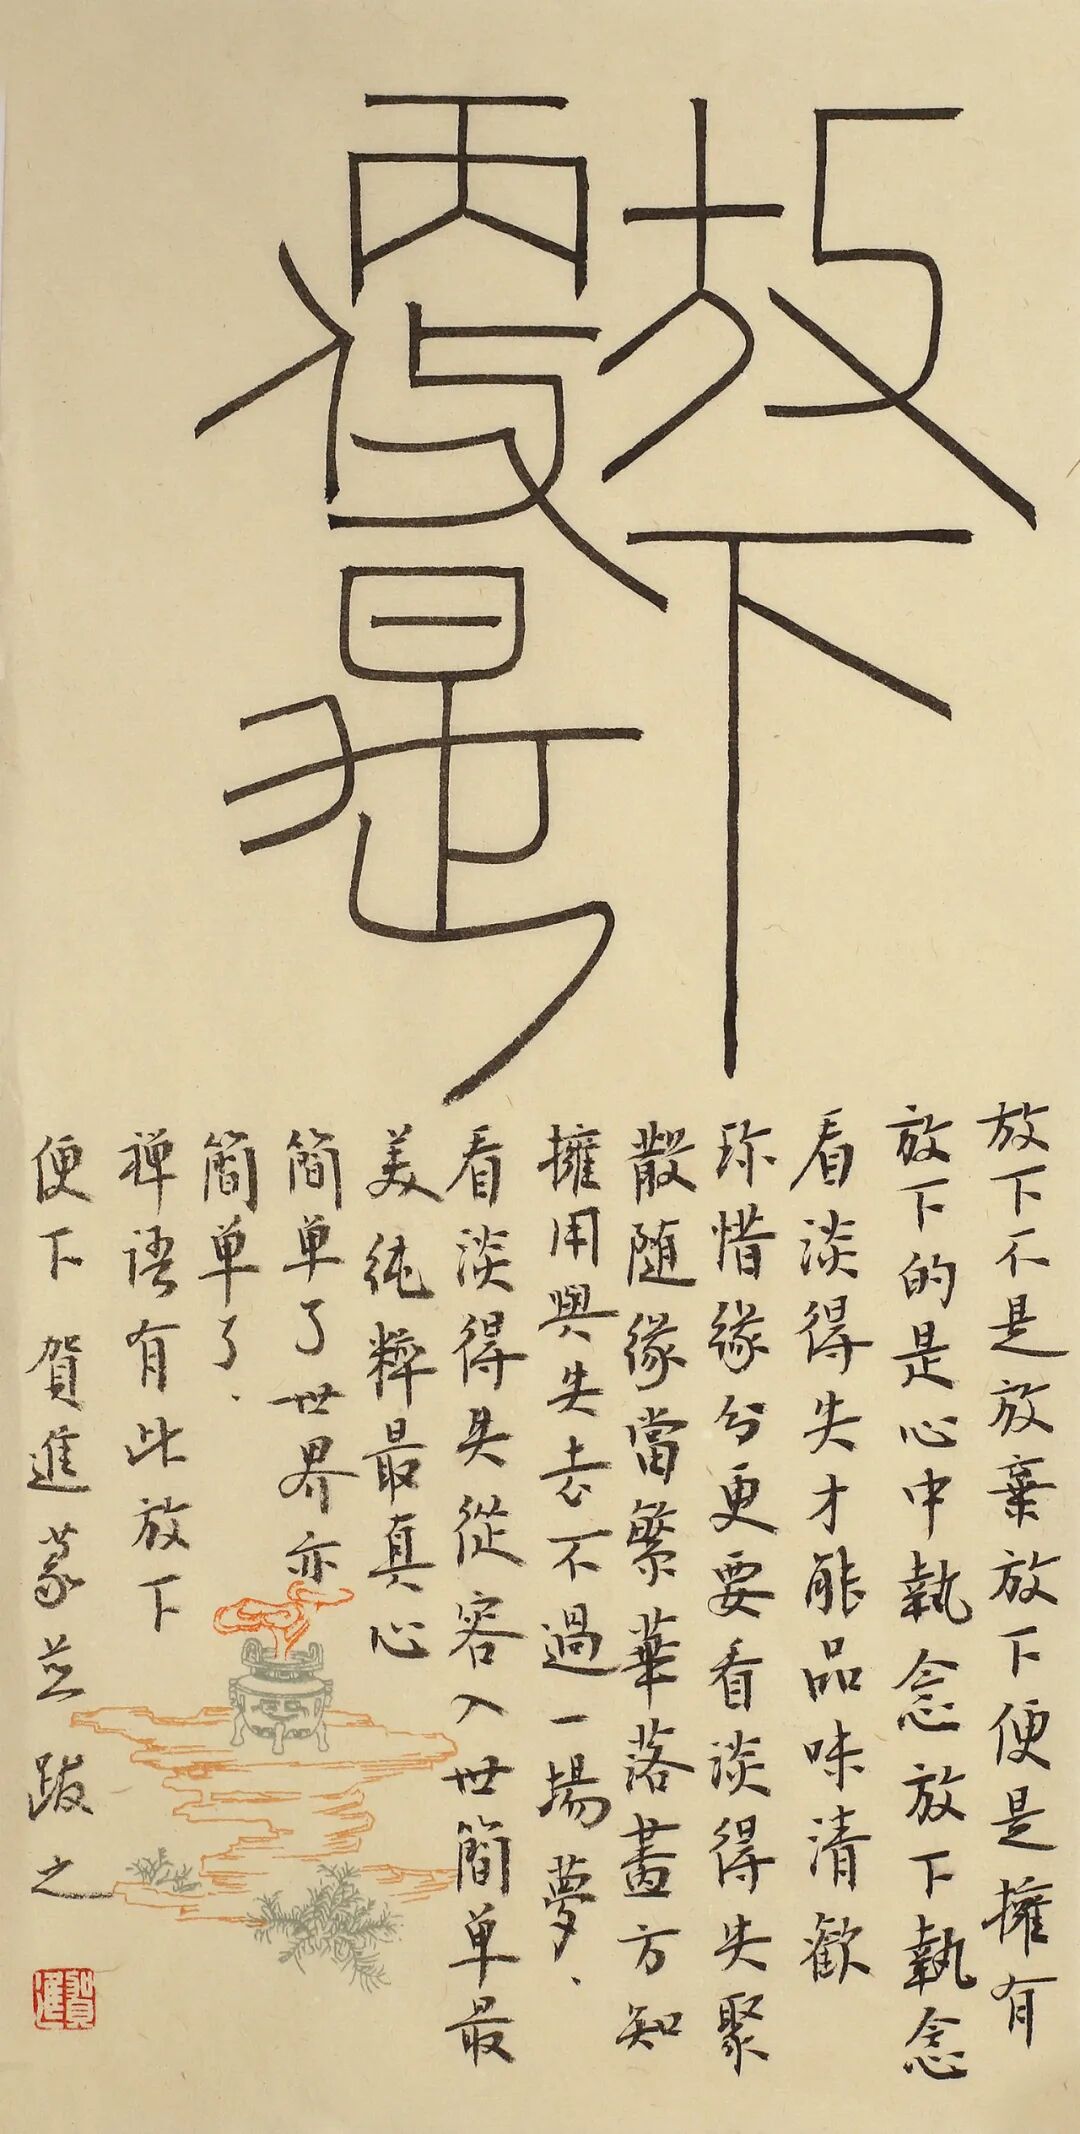 放下
便是
放下不是放棄放下便是擁有
放下的是心中執念放下執念
看淡得失才能品味清歡
珍惜緣分更要看淡得失聚
散随緣當繁華落盡方知
擁用與失去不過一場夢、
看淡得失從容入世簡单最
美純粹最真心
簡单了世界亦
簡单了、
禅语有此放下
便下 賀進篆並跋之
賀進